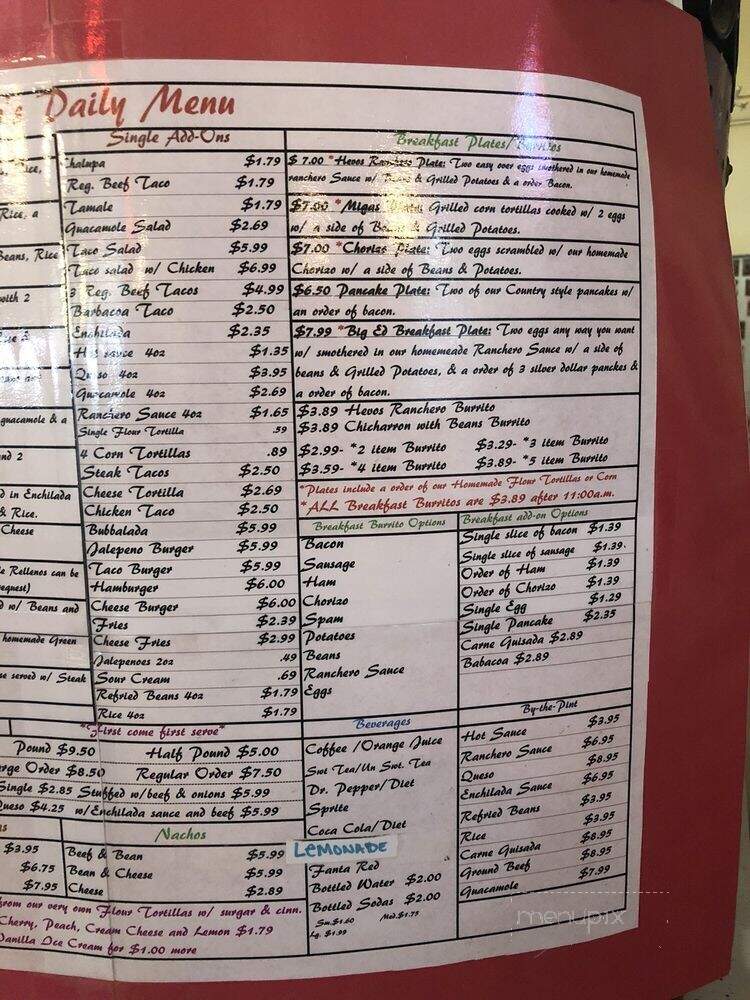 Daily Menu
Single Add-Ons
Chalupa $1.79
Reg. Beef Taco $1.79
Tamale $1.79
Guacamole Salad $2.69
Taco Salad $5.99
Taco salad w/ Chicken $6.99
3 Reg. Beef Tacos $4.99
Barbacoa Taco $2.50
Enchilada $2.35
Hot sauce 4oz $1.35
Queso 4oz $3.95
Guacamole 4oz $2.69
Ranchero Sauce 4oz $1.65
Single Flour Tortilla .59
4 Corn Tortillas .89
Steak Tacos $2.50
Cheese Tortilla $2.69
Chicken Taco $2.50
Bubbalada $5.99
Jalepeno Burger $5.99
Taco Burger $5.99
Hamburger $6.00
Cheese Burger $6.00
Fries $2.39
Cheese Fries $2.99
Jalepenoes 2oz .49
Sour Cream .69
Refried Beans 4oz $1.79
Rice 4oz $1.79
Breakfast Plates/Burritos
$7.00 *Hevos Ranchero Plate: Two easy over eggs smothered in our homemade
ranchero Sauce w/ Beans & Grilled Potatoes & a order Bacon.
$7.00 *Migas Plate: Grilled corn tortillas cooked w/ 2 eggs
w/ a side of Beans & Grilled Potatoes.
$7.00 *Chorizo Plate: Two eggs scrambled w/ our homemade
Chorizo w/ a side of Beans & Potatoes.
$6.50 Pancake Plate: Two of our Country style pancakes w/
an order of bacon.
$7.99 *Big Ed Breakfast Plate: Two eggs any way you want
w/ smothered in our homemeade Ranchero Sauce w/ a side of
beans & Grilled Potatoes, & a order of 3 silver dollar panckes &
a order of bacon.
$3.89 Hevos Ranchero Burrito
$3.89 Chicharron with Beans Burrito
$2.99- *2 item Burrito $3.29- *3 item Burrito
$3.59- *4 item Burrito $3.89- *5 item Burrito
*Plates include a order of our Homemade Flour Tortillas or Corn
*ALL Breakfast Burritos are $3.89 after 11:00a.m.
Breakfast Burrito Options
Bacon
Sausage
Ham
Chorizo
Spam
Potatoes
Beans
Ranchero Sauce
Eggs
Breakfast add-on Options
Single slice of bacon $1.39
Single slice of sausage $1.39.
Order of Ham $1.39
Order of Chorizo $1.39
Single Egg $1.29
Single Pancake $2.35
Carne Guisada $2.89
Babacoa $2.89
Rice, a
Beans, Rice
with 2
guacamole & a
and 2
d in Enchilada
& Rice.
Cheese
Rellenos can be
request)
d w/ Beans and
homemade Green
se served w/ Steak
*First come first serve*
Pound $9.50 Half Pound $5.00
rge Order $8.50 Regular Order $7.50
Single $2.85 Stuffed w/beef & onions $5.99
Queso $4.25 w/Enchilada sauce and beef $5.99
$3.95
$6.75
$7.95
Nachos
Beef & Bean $5.99
Bean & Cheese $5.99
Cheese $2.89
from our very own Flour Tortillas w/ surgar & cinn.
Cherry, Peach, Cream Cheese and Lemon $1.79
Vanilla Ice Cream for $1.00 more
Beverages
Coffee /Orange Juice
Swt Tea/Un Swt. Tea
Dr. Pepper/Diet
Sprite
Coca Cola/Diet
LEMONADE
Fanta Red
Bottled Water $2.00
Bottled Sodas $2.00
Sm.$1.60 Med.$1.75
Lg. $1.99
By-the-Pint
Hot Sauce $3.95
Ranchero Sauce $6.95
Queso $8.95
Enchilada Sauce $6.95
Refried Beans $3.95
Rice $3.95
Carne Guisada $8.95
Ground Beef $8.95
Guacamole $7.99
menupix